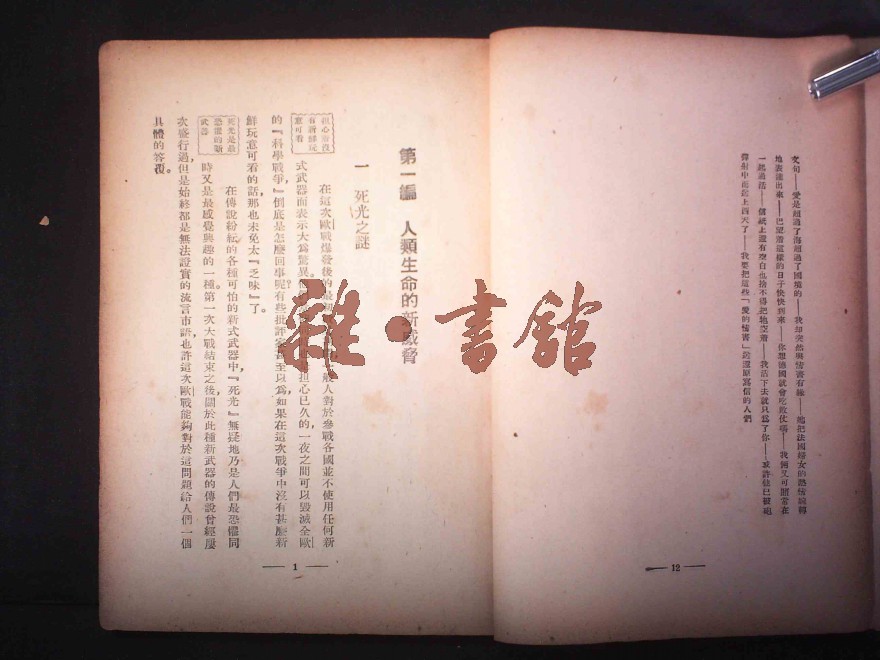 文句——愛是超過了海超過了國境的——我却突然與情書有緣——她把法國婦女的熱情婉轉
地表達出來——巴望着這樣的日子快快到來——你想德國就會吃敗仗嗎——我倆又可照常在
一起過活——信紙上還有空白也捨不得把牠空着——我活下去就只爲了你——或許他已被砲
彈射中而跑上西天了——我要把這些「愛的情書」送還原寫信的人們
— 12 —
第一編 人類生命的新威脅
一 死光之謎
担心着沒
有新鮮玩
意可看
在這次歐戰爆發後的最初
般人對於參戰各國並不使用任何新
式武器而表示大爲驚異
担心已久的，一夜之間可以毀滅全歐
的『科學戰爭』倒底是怎麼回事呢？有些批評家甚至以爲，如果在這次戰爭中沒有甚麼新
鮮玩意可看的話，那也未免太『乏味』了。
死光是最
恐懼的新
武器
在傳說紛紜的各種可怕的新式武器中，『死光』無疑地乃是人們最恐懼同
時又是最感覺興趣的一種。第一次大戰結束之後，關於此種新武器的傳說曾經屢
次盛行過，但是始終都是無法證實的流言市語，也許這次歐戰能夠對於這問題給人們一個
具體的答覆。
— 1 —
雜·書館